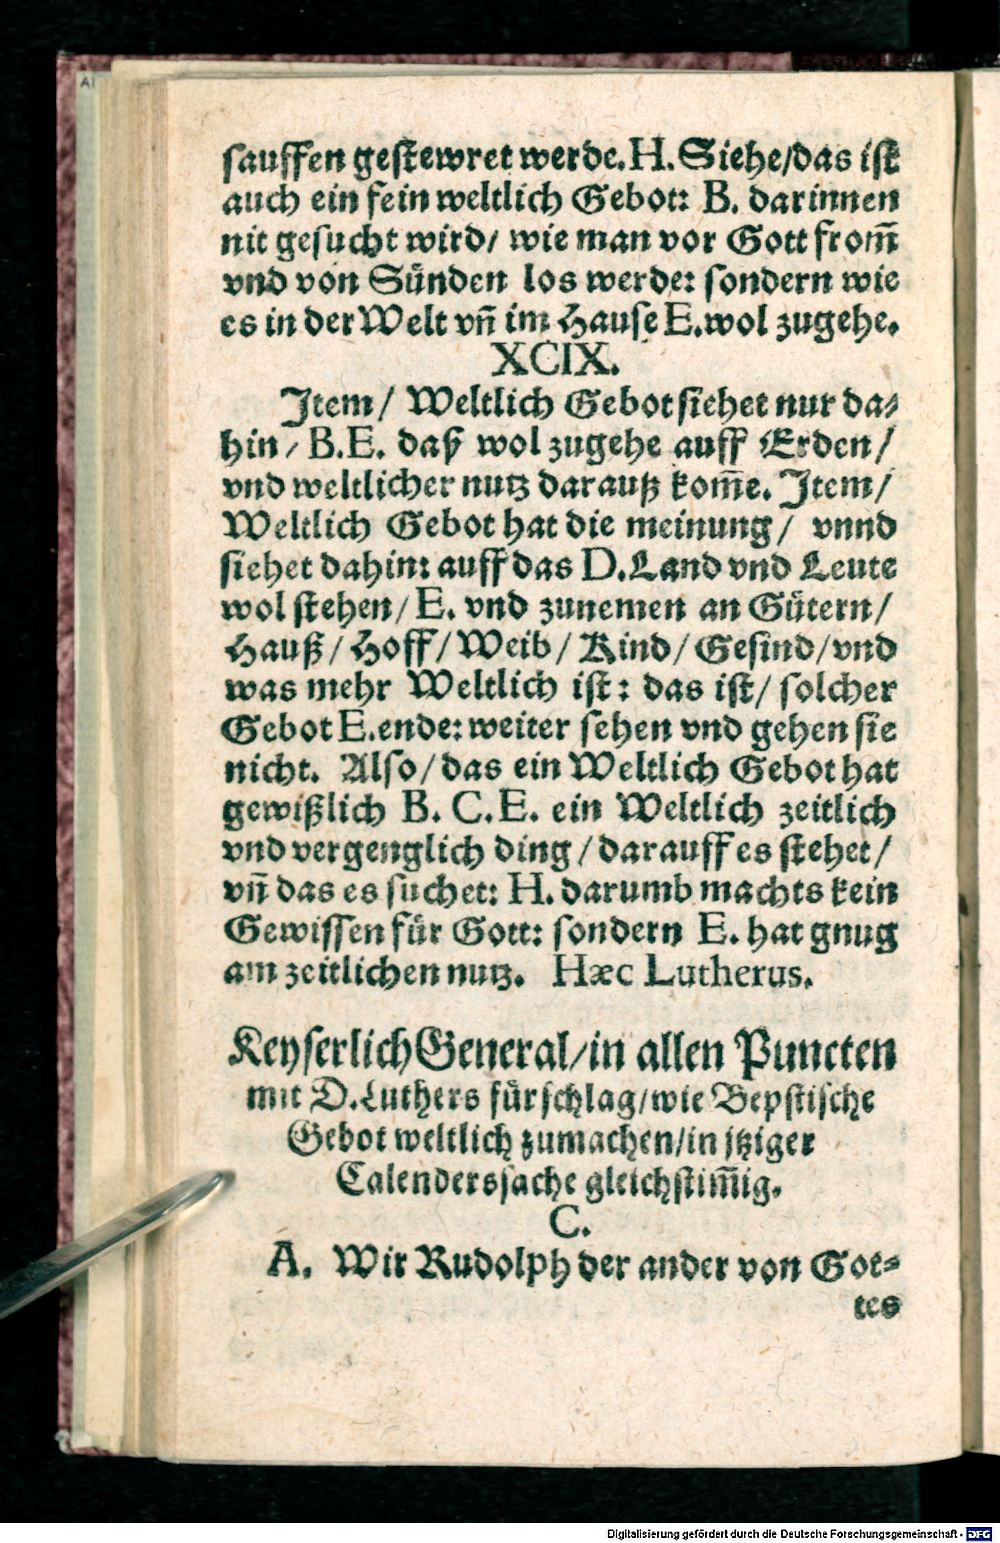 sauffen gestewret werde. H. Siehe/das ist
auch ein fein weltlich Gebot: B. darinnen
nit gesucht wird/ wie man vor Gott from̄
vnd von Sünden los werde: sondern wie
es in der Welt vn̄ im Hause E. wol zugehe.
XCIX.
Item/ Weltlich Gebot siehet nur da-
hin/ B. E. daß wol zugehe auff Erden/
vnd weltlicher nutz darauß kom̄e. Item/
Weltlich Gebot hat die meinung/ vnnd
siehet dahin: auff das D. Land vnd Leute
wol stehen/ E. vnd zunemen an Gütern/
Hauß/ Hoff/ Weib/ Kind/ Gesind/ vnd
was mehr Weltlich ist: das ist/ solcher
Gebot E. ende: weiter sehen vnd gehen sie
nicht. Also/ das ein Weltlich Gebot hat
gewißlich B. C. E. ein Weltlich zeitlich
vnd vergenglich ding/ darauff es stehet/
vn̄ das es suchet: H. darumb machts kein
Gewissen für Gott: sondern E. hat gnug
am zeitlichen nutz. Hæc Lutherus.
Keyserlich General/in allen Puncten
mit D. Luthers fürschlag/wie Bepstische
Gebot weltlich zumachen/in jtziger
Calenderssache gleichstim̄ig.
C.
A. Wir Rudolph der ander von Got-
tes
Digitalisierung gefördert durch die Deutsche Forschungsgemeinschaft - DFG
A1